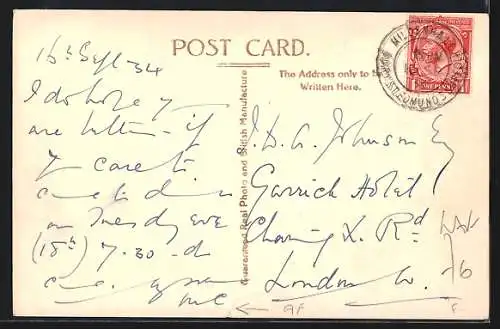 POST CARD.
The Address only to be
Written Here.
Guaranteed Real Photo and British Manufacture
MILDENHALL
BURY ST EDMUNDS
ONE PENNY
16th Sept 34
I do hope you
are better - if
you care to
come to dinner
on Tuesday eve
(18th) 7.30 - do
Johnson Esq
Garrick Hotel
Charing X. Rd
London W.